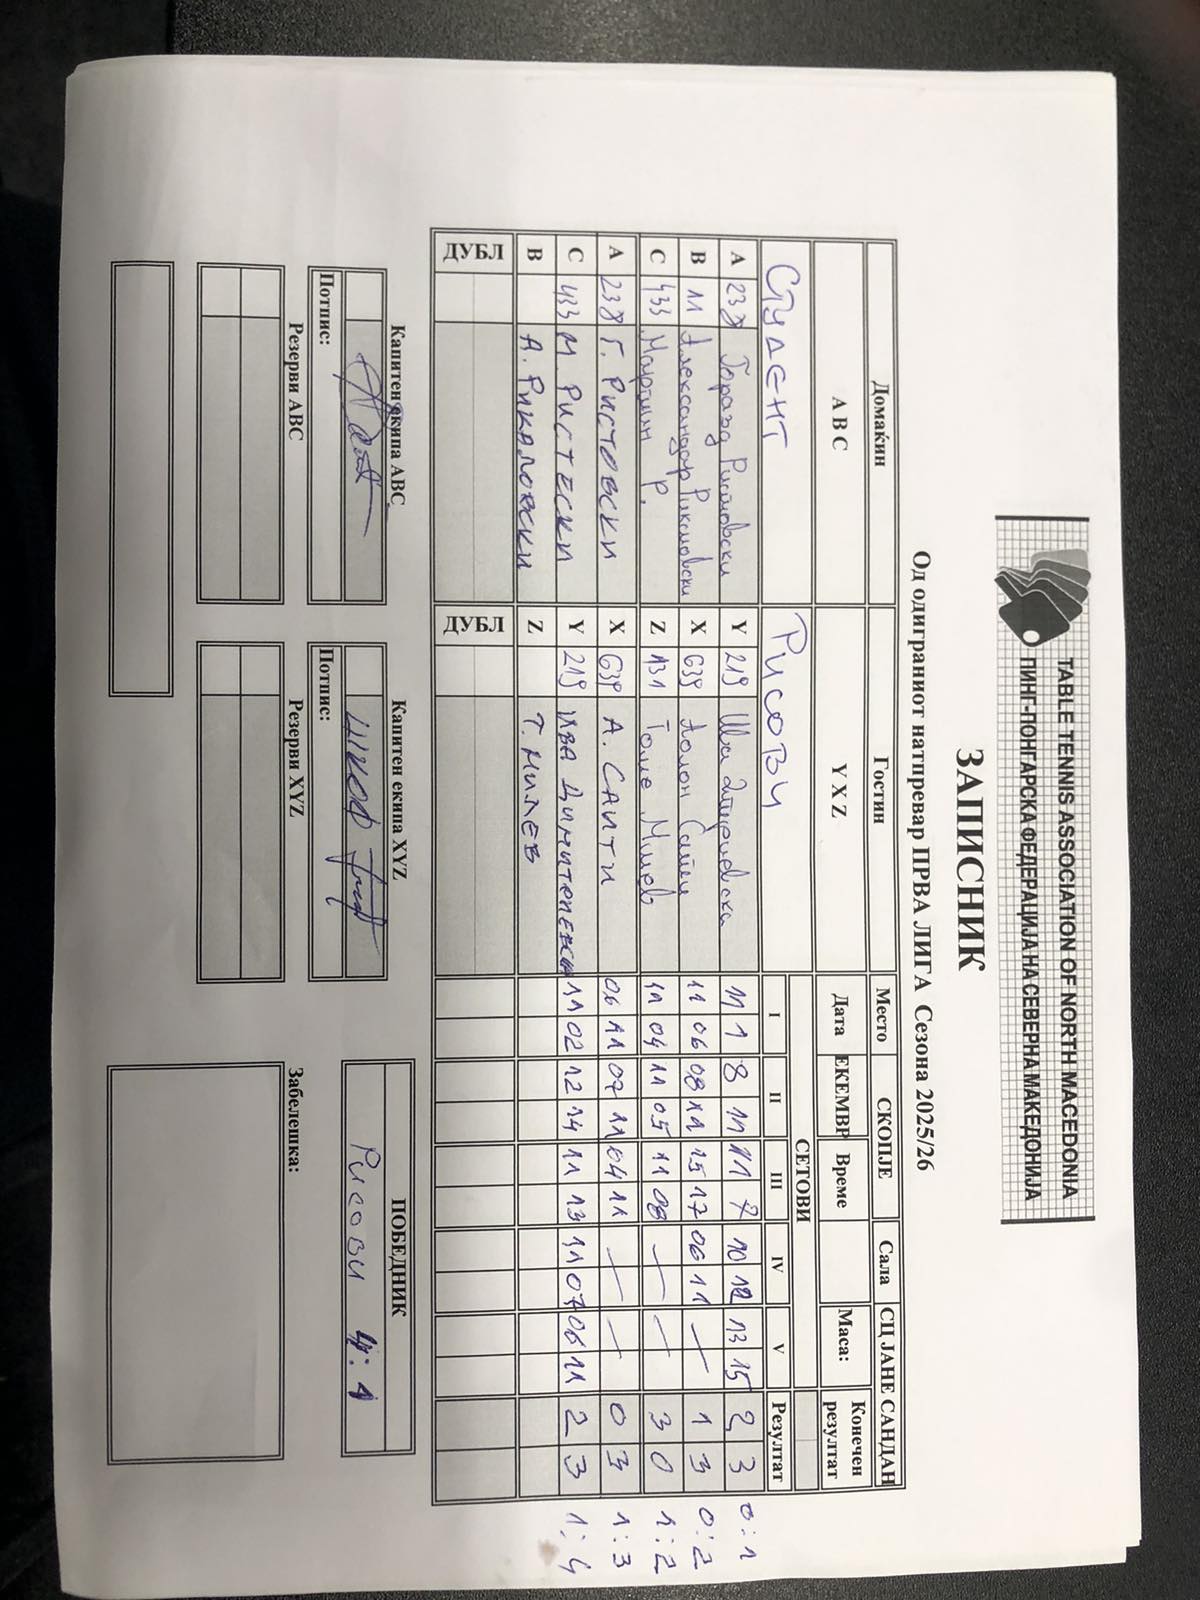 TABLE TENNIS ASSOCIATION OF NORTH MACEDONIA
ПИНГ-ПОНГАРСКА ФЕДЕРАЦИЈА НА СЕВЕРНА МАКЕДОНИЈА
ЗАПИСНИК
Од одиграниот натпревар ПРВА ЛИГА Сезона 2025/26
Домаќин Гостин Место СКОПЈЕ Сала СЦ ЈАНЕ САНДАН
A B C Y X Z Дата ЕКЕМВР Време Маса: Конечен резултат
СЕТОВИ
СТУДЕНТ РИСОВИ I II III IV V Резултат
A 238 Горазд Ристовски Y 219 Ива Димитриевска 11 1 8 11 11 7 10 12 13 15 2 3 0:1
B 11 Александар Рикаловски X 639 11 06 08 11 15 17 06 11 — 1 3 0:2
C 433 Мартин Р. Z 131 Тоше Милев 11 04 11 05 11 08 — — 3 0 1:2
A 238 Г. РИСТОВСКИ X 639 А. САИТИ 06 11 07 11 04 11 — — 0 3 1:3
C 433 М. РИСТЕСКИ Y 219 ИВА ДИМИТРИЕВСКА 11 02 12 14 11 13 11 07 06 11 2 3 1:4
B А. РИКАЛОВСКИ Z Т. МИЛЕВ
ДУБЛ ДУБЛ
Капитен екипа ABC Капитен екипа XYZ ПОБЕДНИК
Потпис: Потпис: Рисови 4:1
Резерви ABC Резерви XYZ Забелешка: